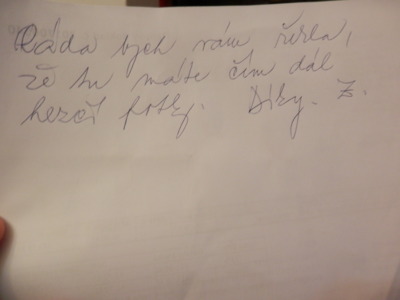 Ráda bych vám řekla,
že tu máte čím dál
hezčí fotky. Díky. Z.